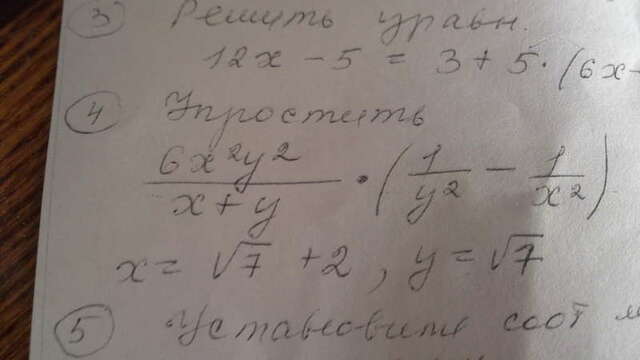 3 Решить уравн.
12x - 5 = 3 + 5 · (6x -
4 Упростить
6x²y² / x + y · (1/y² - 1/x²)
x = √7 + 2, y = √7
5 Установите соот